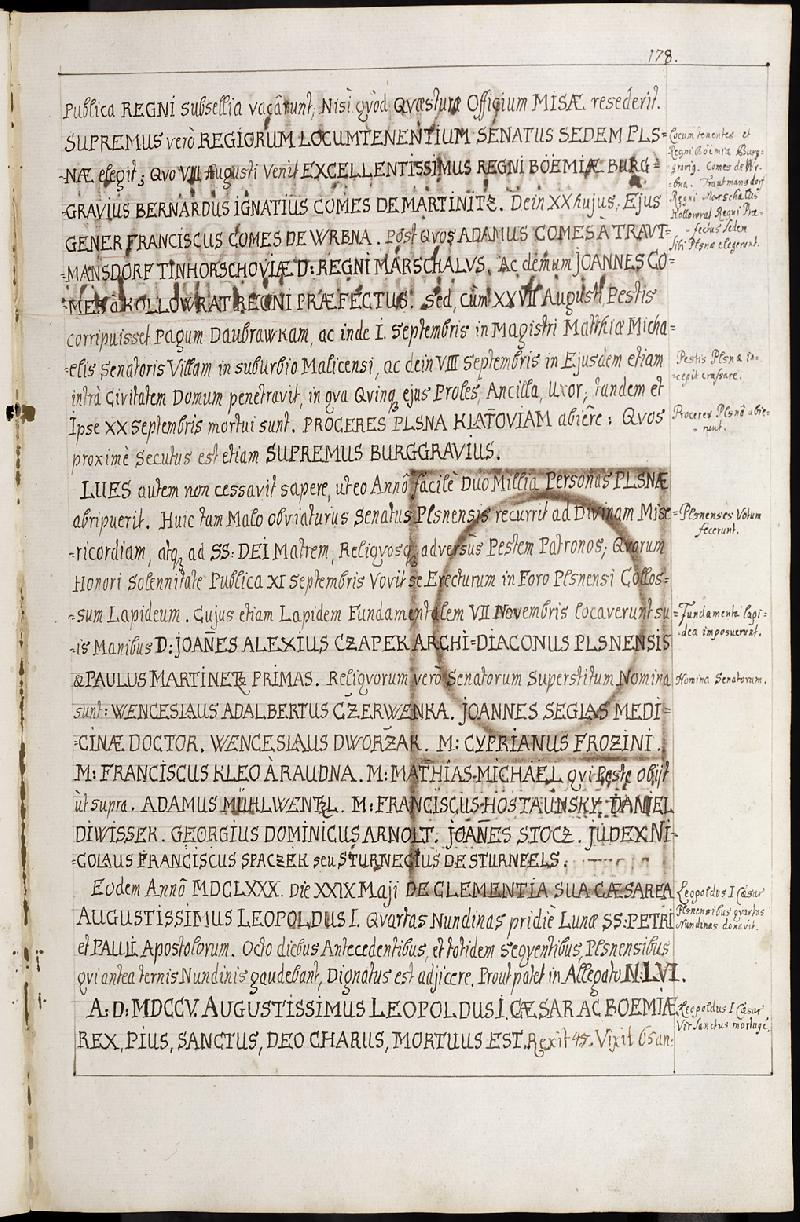 178.
Publica REGNI subsellia vacârunt, Nisi qvòd Qvæsturæ Officium MISÆ resederit.
SUPREMUS verò REGIORUM LOCUMTENENTIUM SENATUS SEDEM PLS=
=NÆ elegit; Qvo VII Augusti Venit EXCELLENTISSIMUS REGNI BOEMIÆ BURG=
GRAVIUS BERNARDUS IGNATIUS COMES DE MARTINITZ. Dein XX hujus, Ejus
GENER FRANCISCUS COMES DE WRBNA. Post Qvos ADAMUS COMES A TRAVT=
=MANSDORF TINHORSCHOVIÆ D: REGNI MARSCHALVS. Ac demum JOANNES CO=
=MES à KOLLOWRAT REGNI PRÆFECTUS. Sed, cum XXVII Augusti, Pestis
corripuisset Pagum Daubrawkam, ac inde I. Septembris in Magistri Matthiæ Micha=
=elis Senatoris Villam in suburbio Malicensi, ac dein VIII Septembris in Ejusdem etiam
intrà Civitatem Domum penetravit, in qva Qvinq ejus Proles, Ancilla, Uxor, tandem et
Ipse XX Septembris mortui sunt. PROCERES PLSNA KLATOVIAM abiêre: Qvos
proximè Secutus est etiam SUPREMUS BURGGRAVIUS.
LUES autem non cessavit sapere, ut eo Annô facilè Duo Millia Personas PLSNÆ
abripuerit. Huic tam Malo obviaturus Senatus Plsnensis recurrit ad Divinam Mise=
=ricordiam, atq, ad SS: DEI Matrem, Religvosq adversùs Pestem Patronos; Qvorum
Honori Solennitate Publica XI Septembris Vovit se Erecturum in Foro Plsnensi Collos=
=sum Lapideum. Cujus etiam Lapidem Fundamentalem VII Novembris locaverunt su=
=is Manibus D: JOAÑES ALEXIUS CZAPEK ARCHI=DIACONUS PLSNENSIS
& PAULUS MARTINETZ PRIMAS. Religvorum verò Senatorum Superstitum Nomina
sunt: WENCESLAUS ADALBERTUS CZERWENKA. JOANNES SEGLAS MEDI=
=CINÆ DOCTOR. WENCESLAUS DWORZAK. M: CYPRIANUS FROZINI.
M: FRANCISCUS KLEO à RAUDNA. M: MATHIAS MICHAEL qvi Peste obijt
ùt supra. ADAMUS MÜHLWENTZL. M: FRANCISCUS HOSTAUNSKY. DANIEL
DIWISSEK. GEORGIUS DOMINICUS ARNOLT. JOAÑES STOCZ. JUDEX NI=
=COLAUS FRANCISCUS SPACZEK seu STURNECIUS DE STURNFELS.
Eodem Annô MDCLXXX. Die XXIX Maji DE CLEMENTIA SUA CÆSAREA
AUGUSTISSIMUS LEOPOLDUS I. Qvartas Nundinas pridiè Lunæ SS: PETRI
et PAULI Apostolorum. Octo diebus Antecedentibus, et totidem seqventibus, Plsnensibus
qvi antea ternis Nundinis gaudebant, Dignatus est adjicere, Prout patet in Allegato N. LVI.
A: D: MDCCV. AUGUSTISSIMUS LEOPOLDUS I. CÆSAR AC BOEMIÆ
REX, PIUS, SANCTUS, DEO CHARUS, MORTUUS EST. Rexit 47. Vixit 65 an:
Locumtenentes et
Regni Böemiæ Burg=
gravig. Comes de Wr=
=bna. Trautmansdorf
Regni Marschallus
Kollowrat Regni Præ=
=fectus Sedem
sibi Plsnæ elegerunt.
Pestis Plsnæ in=
=cepit crassare.
Proceres Plsnâ abie=
=runt.
Plsnenses Votum
fecerunt.
Fundamenta lapi=
=dea imposuerunt.
Nomina Senatorum.
Leopoldus I Cæsar
Plsnensibus qvartas
Nundinas donavit.
Leopoldus I Cæsar
Vir Sanctus